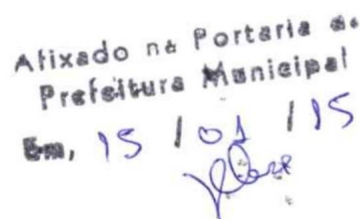 Afixado na Portaria da
Prefeitura Municipal
Em, 15 / 01 / 15